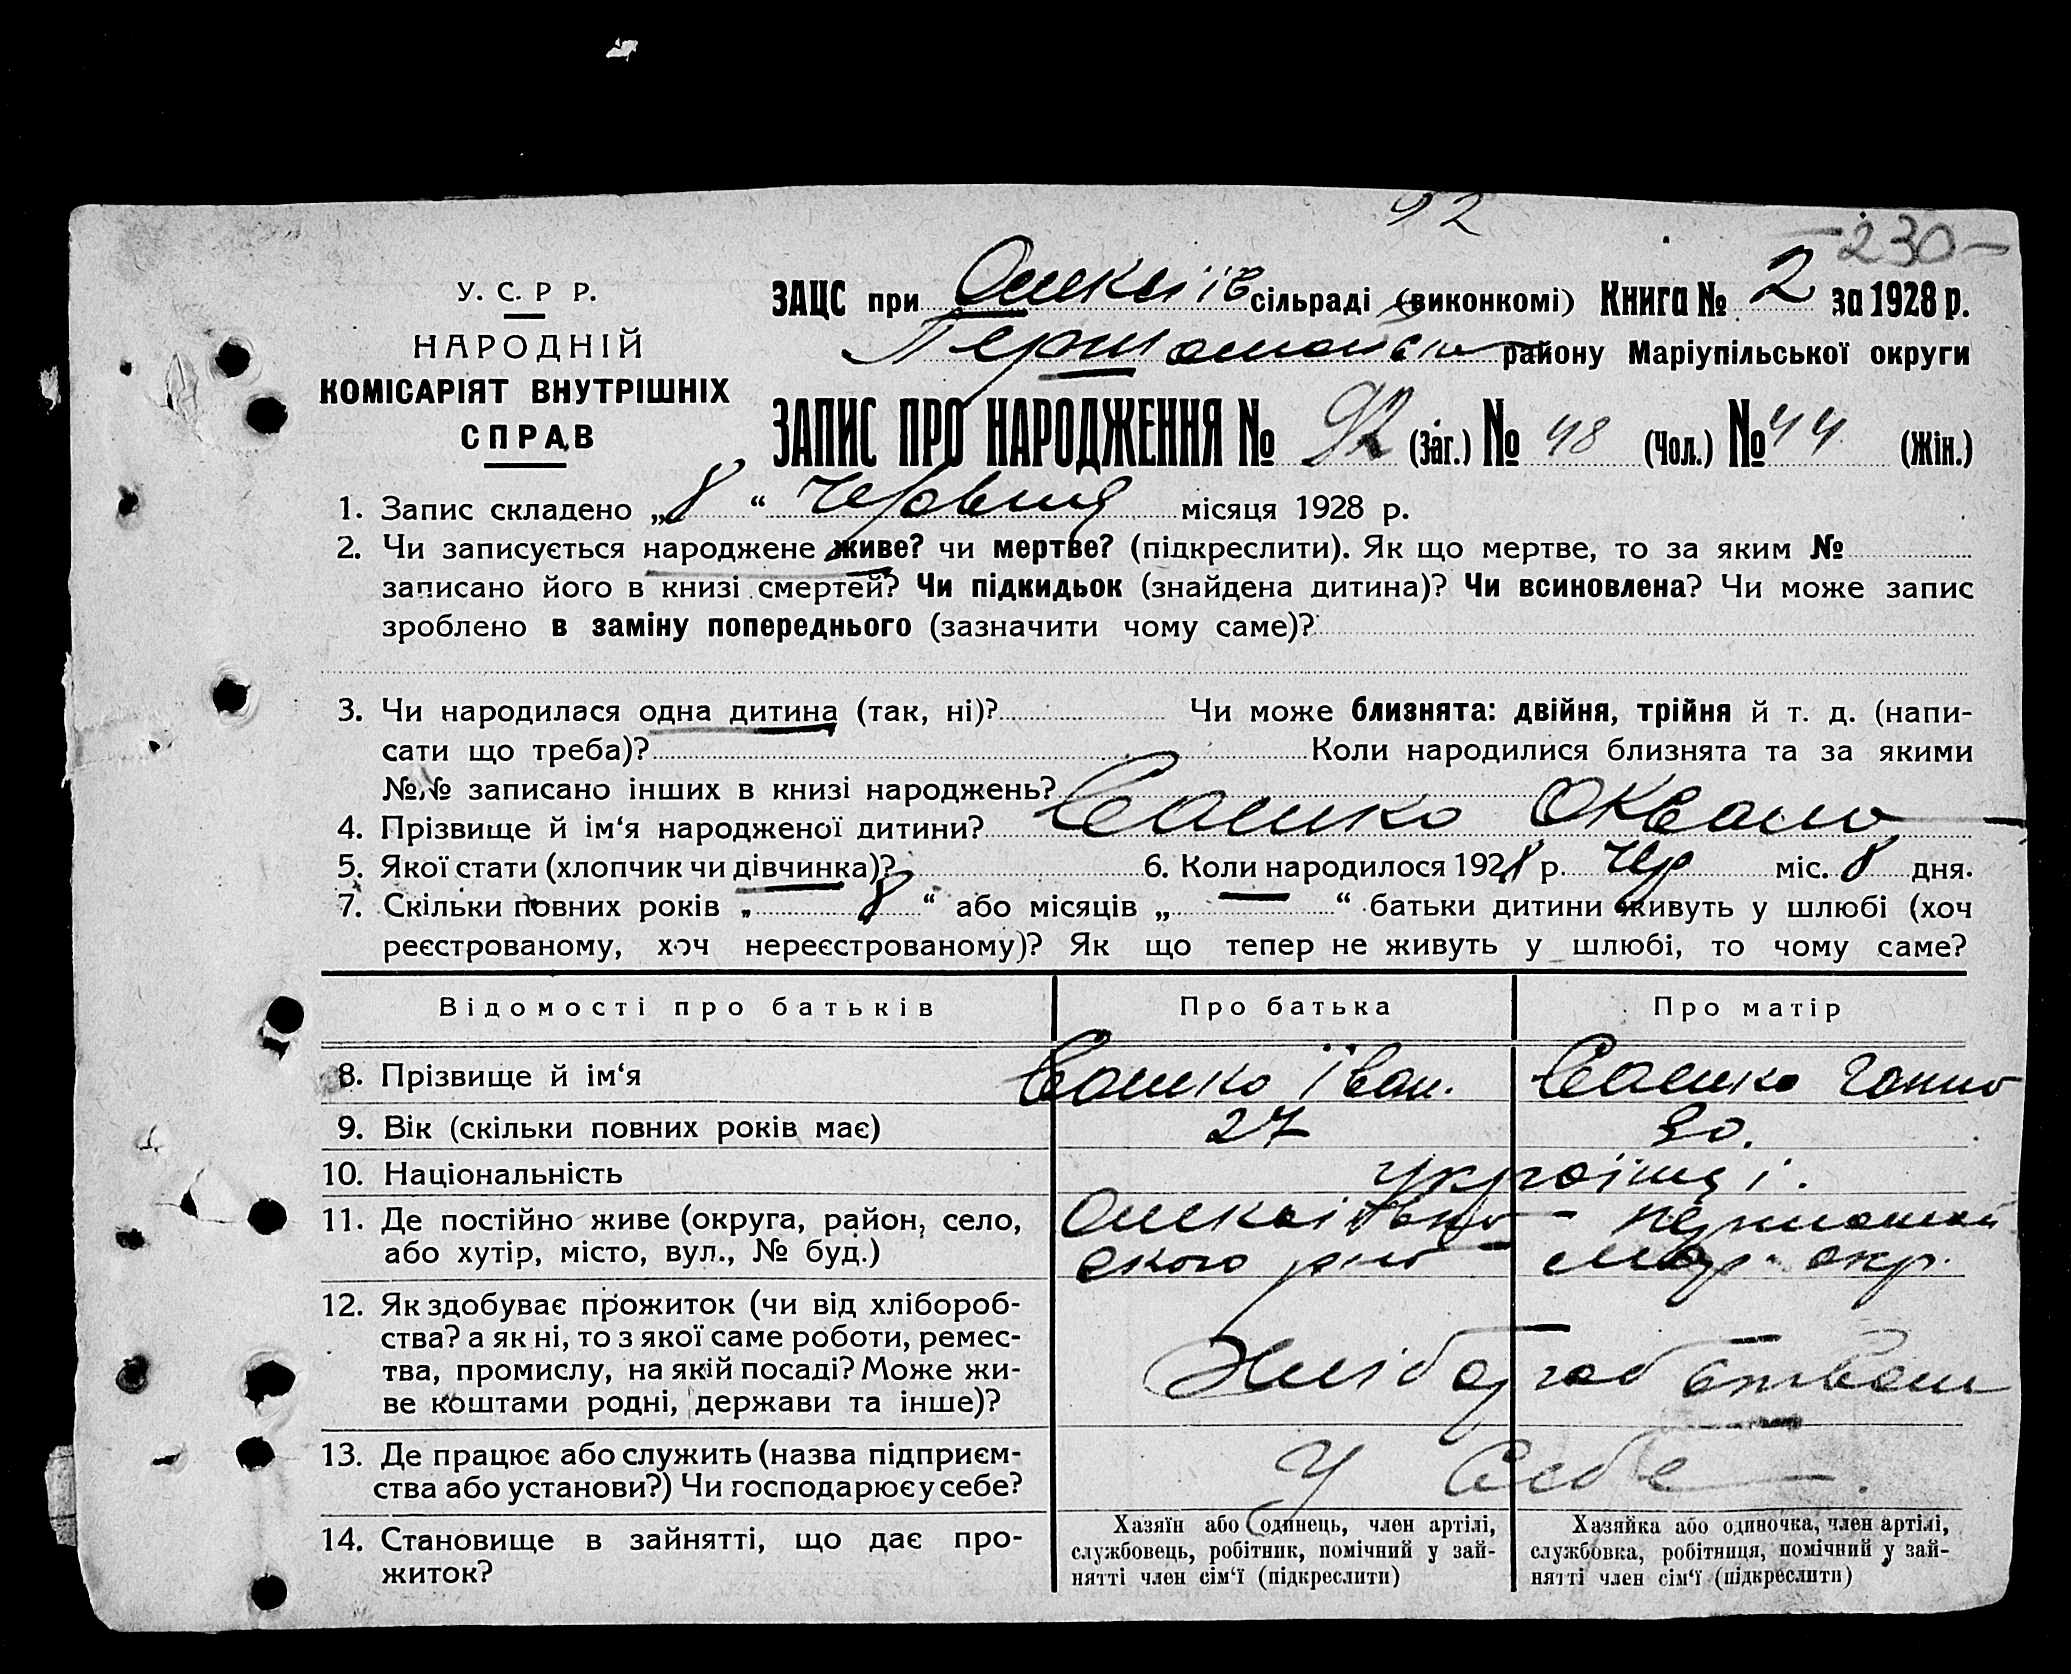 92
-230-
У. С. Р Р.
НАРОДНІЙ
КОМІСАРІЯТ ВНУТРІШНІХ
СПРАВ
ЗАЦС при сільраді (виконкомі) Книга № 2 за 1928 р.
району Маріупільської округи
ЗАПИС ПРО НАРОДЖЕННЯ № 92 (Заг.) № 48 (Чол.) № 44 (Жін.)
1. Запис складено „8“ Червня місяця 1928 р.
2. Чи записується народжене живе? чи мертве? (підкреслити). Як що мертве, то за яким №
записано його в книзі смертей? Чи підкидьок (знайдена дитина)? Чи всиновлена? Чи може запис
зроблено в заміну попереднього (зазначити чому саме)?
3. Чи народилася одна дитина (так, ні)? Чи може близнята: двійня, трійня й т. д. (напи-
сати що треба)? Коли народилися близнята та за якими
№№ записано інших в книзі народжень?
4. Прізвище й ім‘я народженої дитини? Сашко
5. Якої стати (хлопчик чи дівчинка)? 6. Коли народилося 1928 р. Чер міс. 8 дня.
7. Скільки повних років „ 8 “ або місяців „ — “ батьки дитини живуть у шлюбі (хоч
реєстрованому, хоч нереєстрованому)? Як що тепер не живуть у шлюбі, то чому саме?
Відомості про батьків Про батька Про матір
8. Прізвище й ім‘я Сашко Іван. Сашко Ганна
9. Вік (скільки повних років має) 27 30.
10. Національність Українці.
11. Де постійно живе (округа, район, село,
або хутір, місто, вул., № буд.) ского р-ну Мар. окр.
12. Як здобуває прожиток (чи від хлібороб-
ства? а як ні, то з якої саме роботи, ремес-
тва, промислу, на якій посаді? Може жи-
ве коштами родні, держави та інше)?
13. Де працює або служить (назва підприєм-
ства або установи?) Чи господарює у себе? У себе
14. Становище в зайнятті, що дає про-
житок?
Хазяїн або одинець, член артілі,
службовець, робітник, помічний у зай-
нятті член сім‘ї (підкреслити)
Хазяйка або одиночка, член артілі,
службовка, робітниця, помічний у зай-
нятті член сім‘ї (підкреслити)